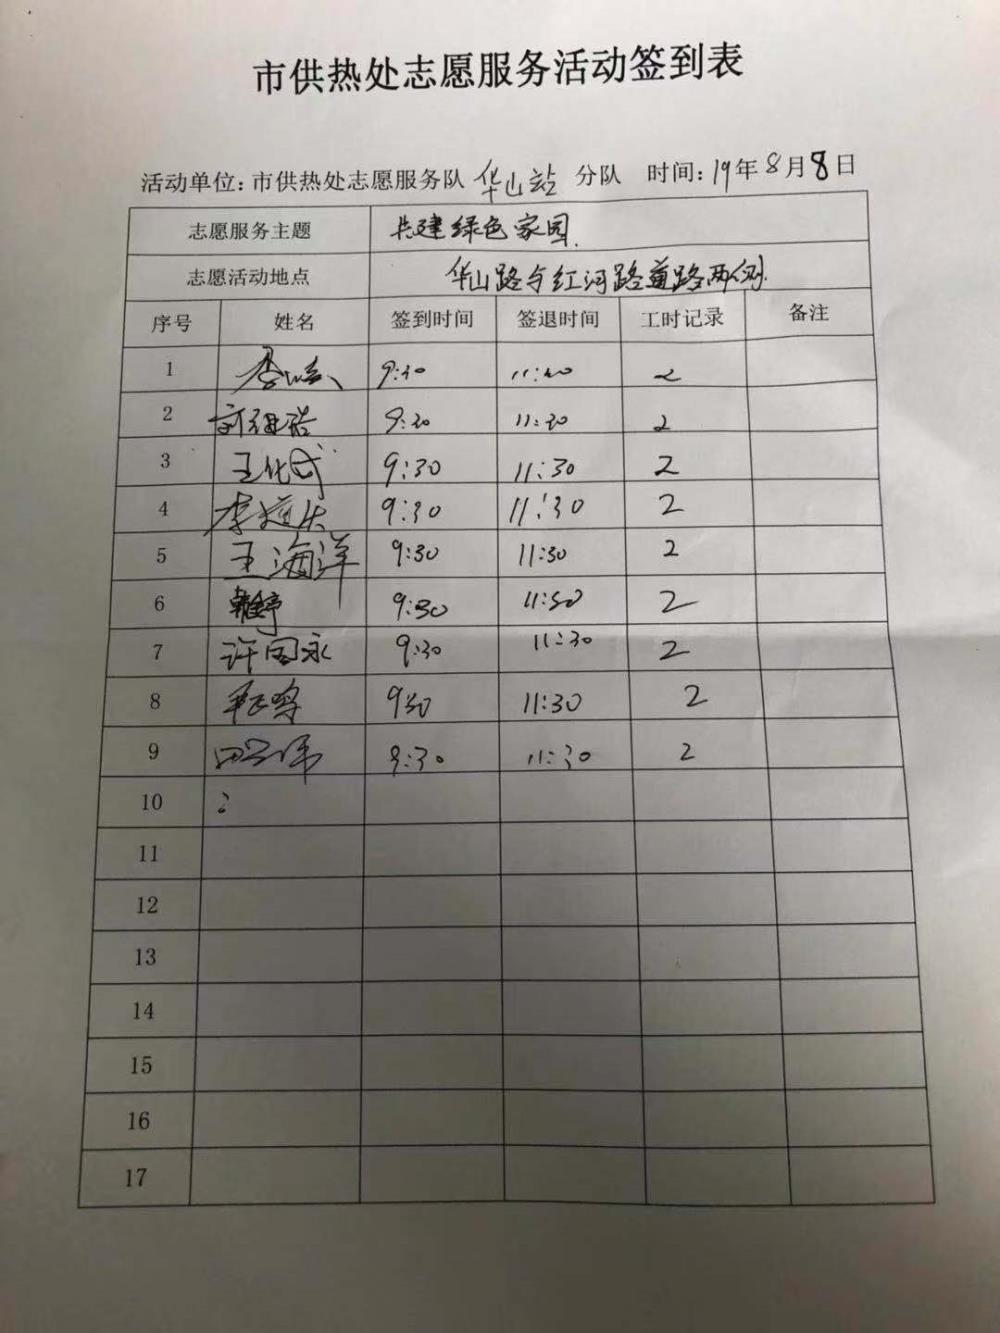 市供热处志愿服务活动签到表
活动单位:市供热处志愿服务队 华山站 分队 时间:19年8月8日
志愿服务主题 共建绿色家园.
志愿活动地点 华山路与红河路道路两侧.
序号 姓名 签到时间 签退时间 工时记录 备注
1 9:30 11:30 2
2 9:30 11:30 2
3 王化武 9:30 11:30 2
4 9:30 11:30 2
5 王海洋 9:30 11:30 2
6 9:30 11:30 2
7 许国永 9:30 11:30 2
8 9:30 11:30 2
9 9:30 11:30 2
10
11
12
13
14
15
16
17